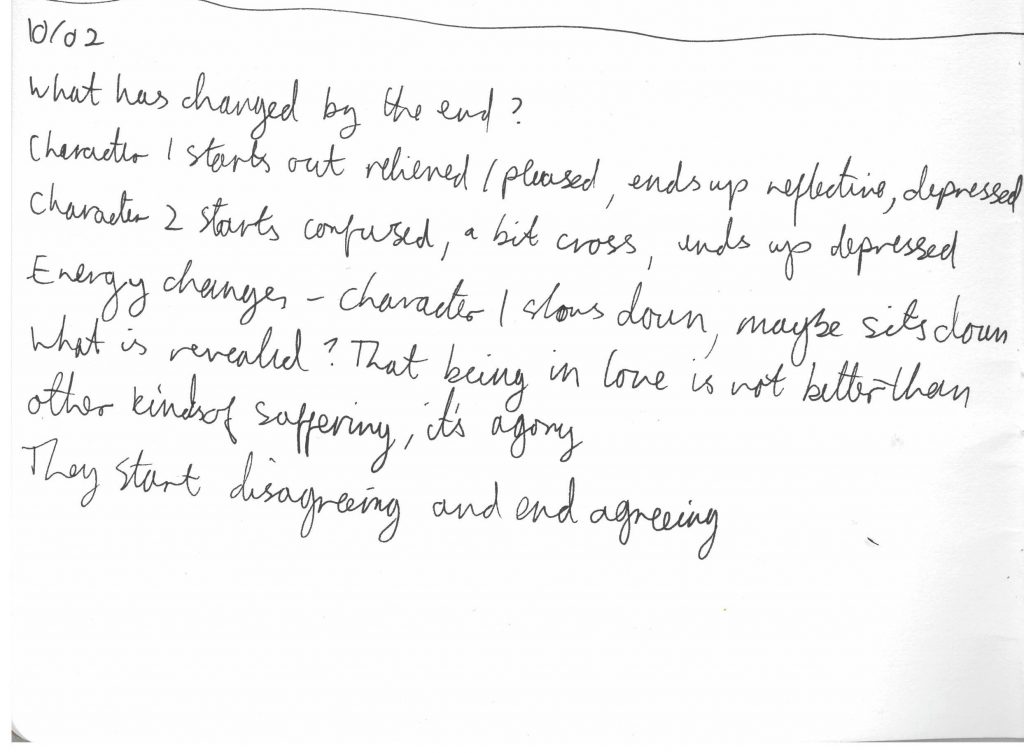 10/02
What has changed by the end?
Character 1 starts out relieved / pleased, ends up reflective, depressed
Character 2 starts confused, a bit cross, ends up depressed
Energy changes - Character 1 slows down, maybe sits down
What is revealed? That being in love is not better than
other kinds of suffering, it's agony
They start disagreeing and end agreeing